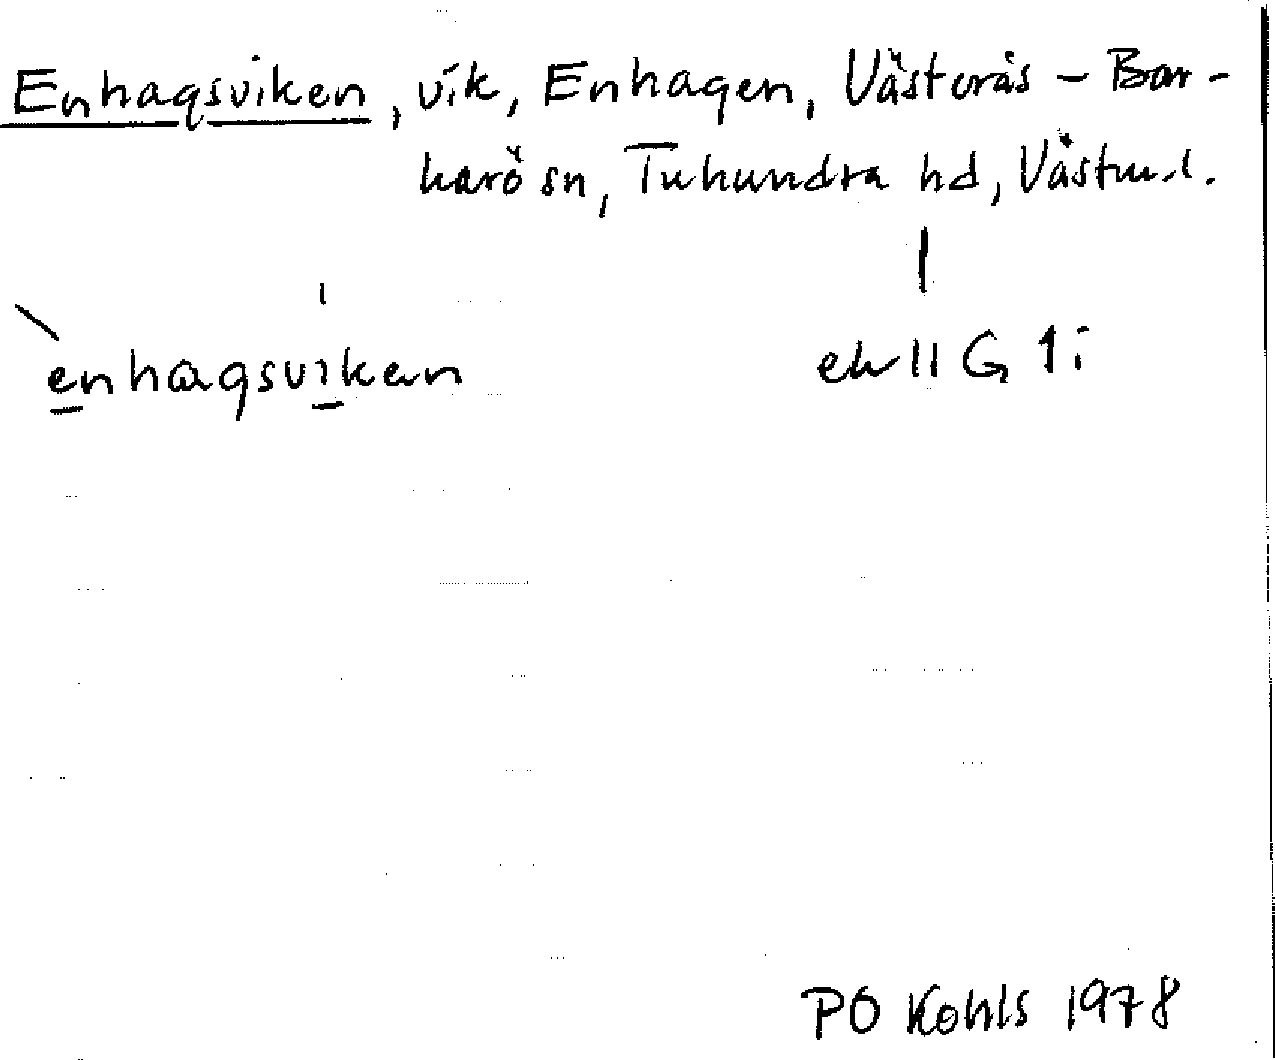 Enhagsviken, vik, Enhagen, Västerås-Bar-
karö sn, Tuhundra hd, Västml.
enhagsviken
ek 11 G 1i
PO Kohls 1978